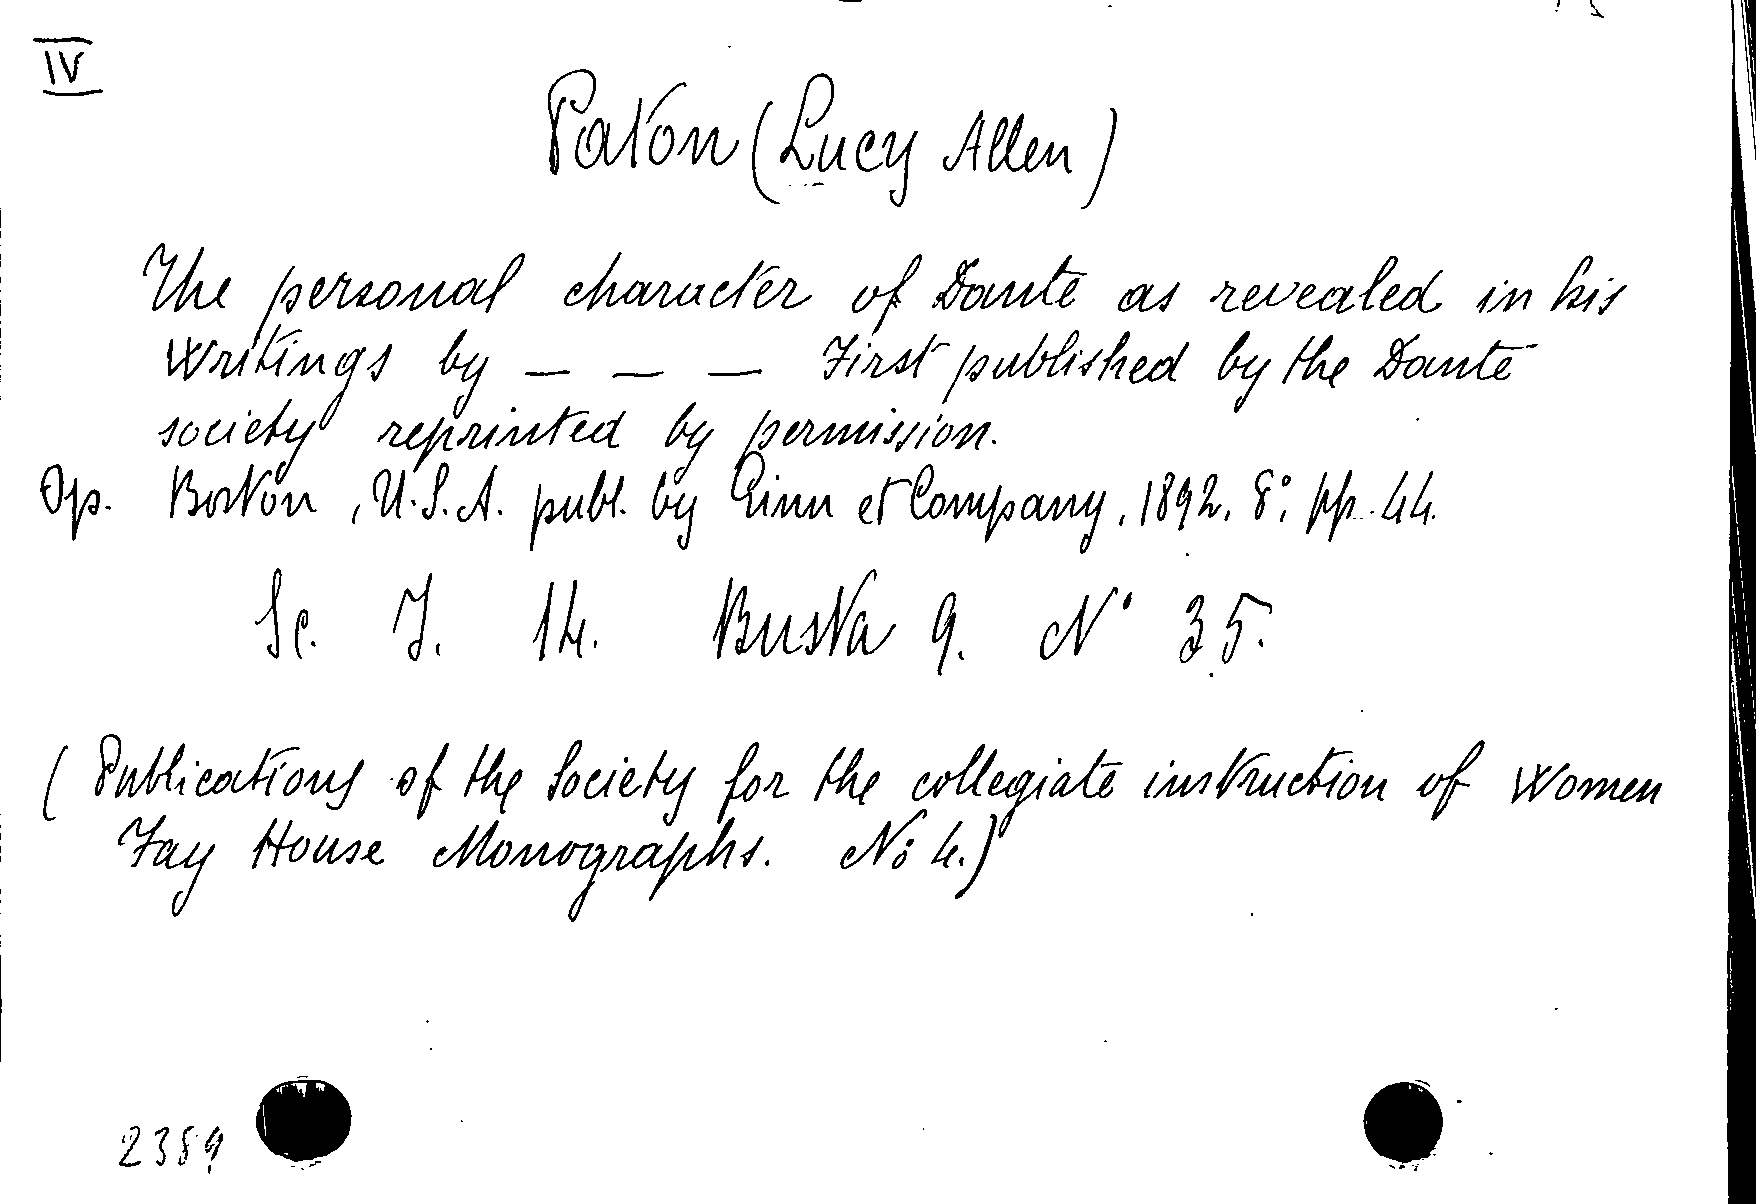 IV
Paton (Lucy Allen)
The personal character of Dante as revealed in his
writings by — — — First published by the Dante
society reprinted by permission.
Op. Boston, U.S.A. publ. by Ginn et Company, 1892. 8°. pp. 44.
Sc. I. 14. Busta 9. N° 35.
(Publications of the Society for the collegiate instruction of Women
Fay House Monographs. No: 4.)
2389